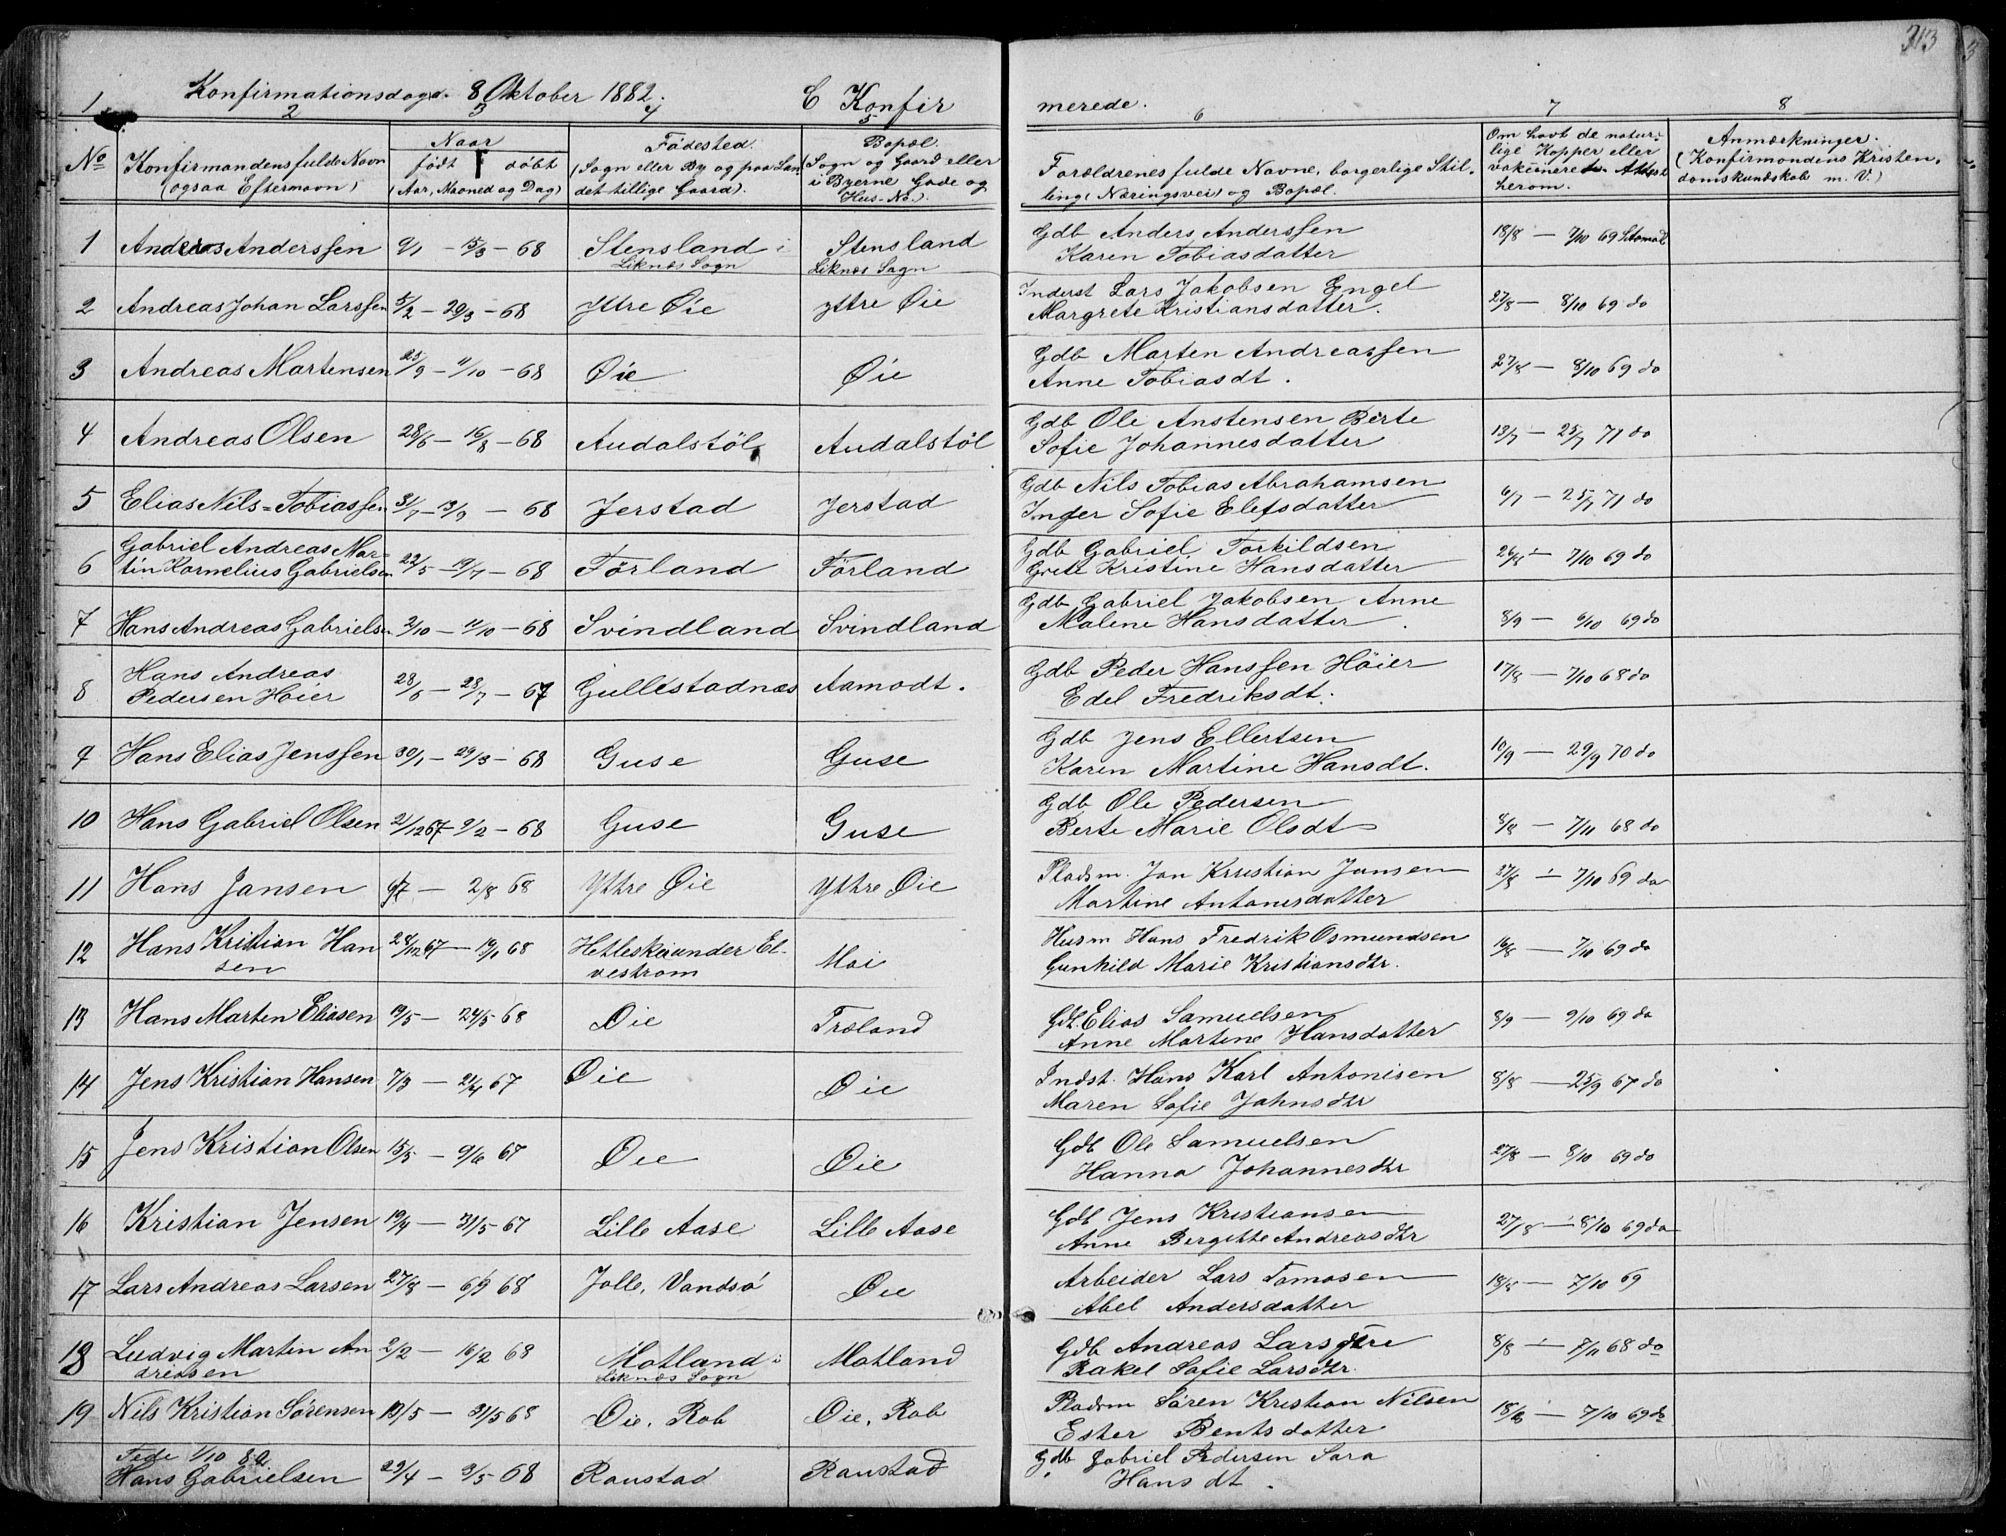 313
Konfirmationsdagd. 8 Oktober 1882.
C Konfir
merede.
1 2 3 4 5 6 7 8
No
Konfirmandens fulde Navn
(ogsaa Efternavn)
Naar
født døbt
(Aar, Maaned og Dag)
Fødested.
(Sogn eller By og paa Lan
det tillige Gaard).
Bopæl.
(Sogn og Gaard eller
i Byerne Gade og
Hus-No.).
Forældrenes fulde Navne, borgerlige Stil-
ling (Næringsvei) og Bopæl.
Om havt de natur-
lige Kopper eller
vakcineret. Attest
herom.
Anmærkninger.
(Konfirmandens Kristen-
domskundskab m. V.)
1 Anders Anderssen 9/1 - 15/3 - 68 Stensland i Stensland
Liknes Sogn Liknes Sogn
Gdb Anders Anderssen 18/8 - 7/10 69
Karen Tobiasdatter
2 Andreas Johan Larssen 5/2 - 29/3 - 68 Yttre Øie yttre Øie
Inderst Lars Jakobsen Engel
Margrete Kristiansdatter. 27/8 - 8/10 69 do
3 Andreas Martensen 25/9 - 11/10 - 68 Øie Øie
Gdb Marten Andreassen
Anne Tobiasdt. 27/8 - 8/10 69 do
4 Andreas Olsen 28/6 - 16/8 - 68 Audalstöl Audalstöl
Gdb Ole Anstensen Berte
Sofie Johannesdatter 13/7 - 25/7 71 do
5 Elias Nils=Tobiassen 31/7 - 13/9 - 68 Jerstad Jerstad
Gdb Nils Tobias Abrahamsen
Inger Sofie Elefsdatter 6/7 - 25/7 71 do
6 Gabriel Andreas Mar-
tin Kornelius Gabrielsen 22/5 - 19/7 - 68 Förland Förland
Gdb Gabriel Torkildsen
Grete Kristine Hansdatter 26/8 - 7/10 69 do
7 Hans Andreas Gabrielsen 2/10 - 11/10 - 68 Svindland Svindland
Gdb Gabriel Jakobsen Anne
Malene Hansdatter. 8/9 - 9/10 69 do
8 Hans Andreas
Pedersen Höier 28/6 - 28/7 - 67 Gullestadnæs Aamodt.
Gdb Peder Hanssen Höier
Edel Fredriksdt. 17/8 - 7/10 68 do
9 Hans Elias Jenssen 30/1 - 29/3 - 68 Guse Guse
Gdb Jens Ellertsen
Karen Martine Hansdt. 10/9 - 29/9 70 do
10 Hans Gabriel Olsen 2/12 67 - 9/2 - 68 Guse Guse
Gdb Ole Pedersen
Berte Marie Olsdt 8/8 - 7/11 68 do
11 Hans Jansen 6/7 - 2/8 68 Yttre Øie Yttre Øie
Pladsm. Jan Kristian Jansen
Martine Antonisdatter 27/8 - 7/10 69 do
12 Hans Kristian Han
sen 28/12 67 - 19/1 68 under El-
vestrøm Moi
Husm Hans Fredrik Osmundsen
Gunhild Marie Kristiansdtr. 16/8 - 7/10 69 do
13 Hans Marten Eliasen 19/5 - 24/5 68 Øie Træland
Gdb. Elias Samuelsen
Anne Martine Hansdatter 8/9 - 9/10 69 do
14 Jens Kristian Hansen 7/3 - 2/4 67 Øie Øie
Indst. Hans Karl Antonisen
Maren Sofie Jahnsdtr 8/8 - 25/9 67 do
15 Jens Kristian Olsen 15/5 - 9/6 67 Øie Øie
Gdb Ole Samuelsen
Hanna Johannesdtr 27/8 - 8/10 69 do
16 Kristian Jensen 19/4 - 31/5 67 Lille Aase Lille Aase
Gdb Jens Kristiansen
Anne Bergitte Andreasdtr 27/8 - 8/10 69 do
17 Lars Andreas Larsen 27/8 - 6/9 68 Jolle, Vandsö Øie
Arbeider Lars Tomasen
Abel Andersdatter 18/8 - 7/10 69
18 Ludvig Martin An
dreasen 2/2 - 16/2 68 Motland i Motland
Liknes Sogn
Gdb Andreas Lars
Rakel Sofie Larsdtr. 8/8 - 7/11 68 do
19 Nils Kristian Sørensen 19/5 - 31/5 68 Øie, Rob Øie, Rob
Pladsm Søren Kristian Nilsen
Ester Bentsdatter 18/8 - 7/10 69 do
Fede 1/10 82
Hans Gabrielsen 29/4 - 3/5 - 68 Raustad Raustad
Gdb Gabriel Pedersen Sara
Hans dt.